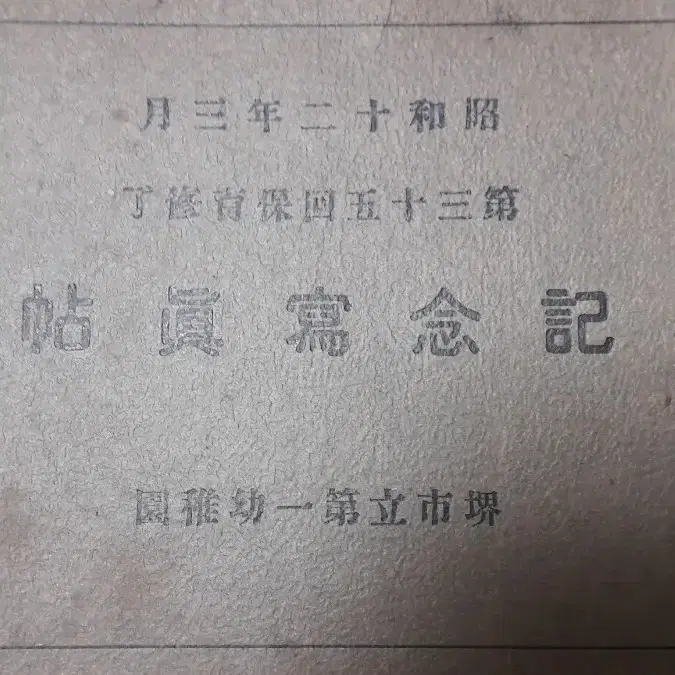 昭和十二年三月
第三十五回保育修了
記念寫眞帖
堺市立第一幼稚園